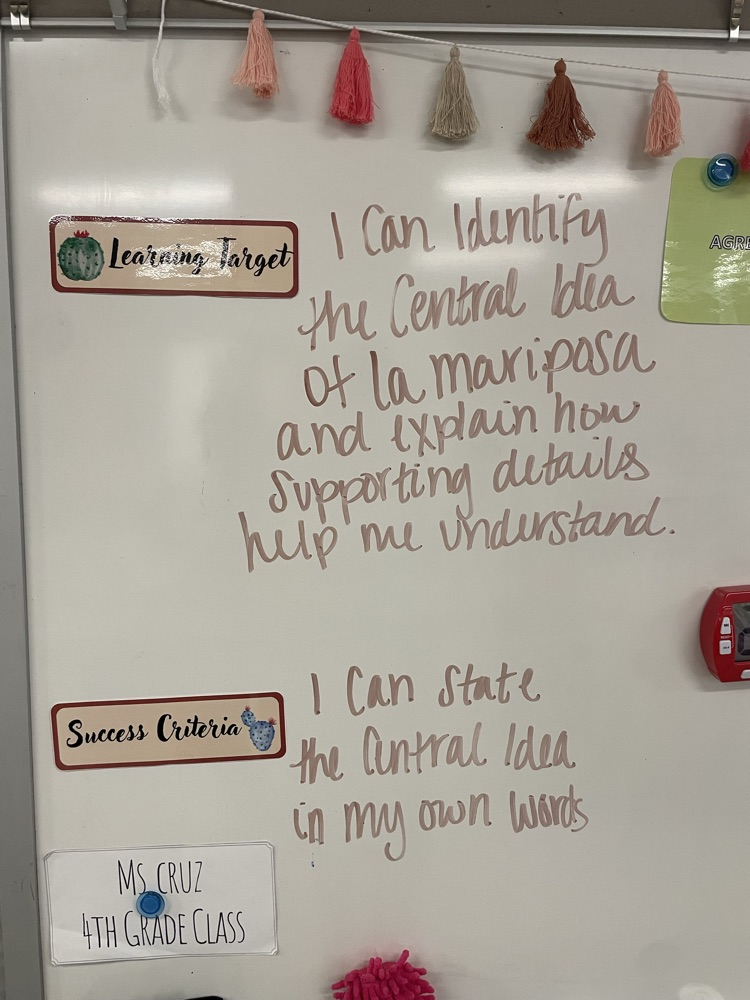 Learning Target
I Can Identify
the Central Idea
of la mariposa
and explain how
supporting details
help me understand.
AGRE
Success Criteria
I Can State
the Central Idea
in my own words
MS. CRUZ
4TH GRADE CLASS